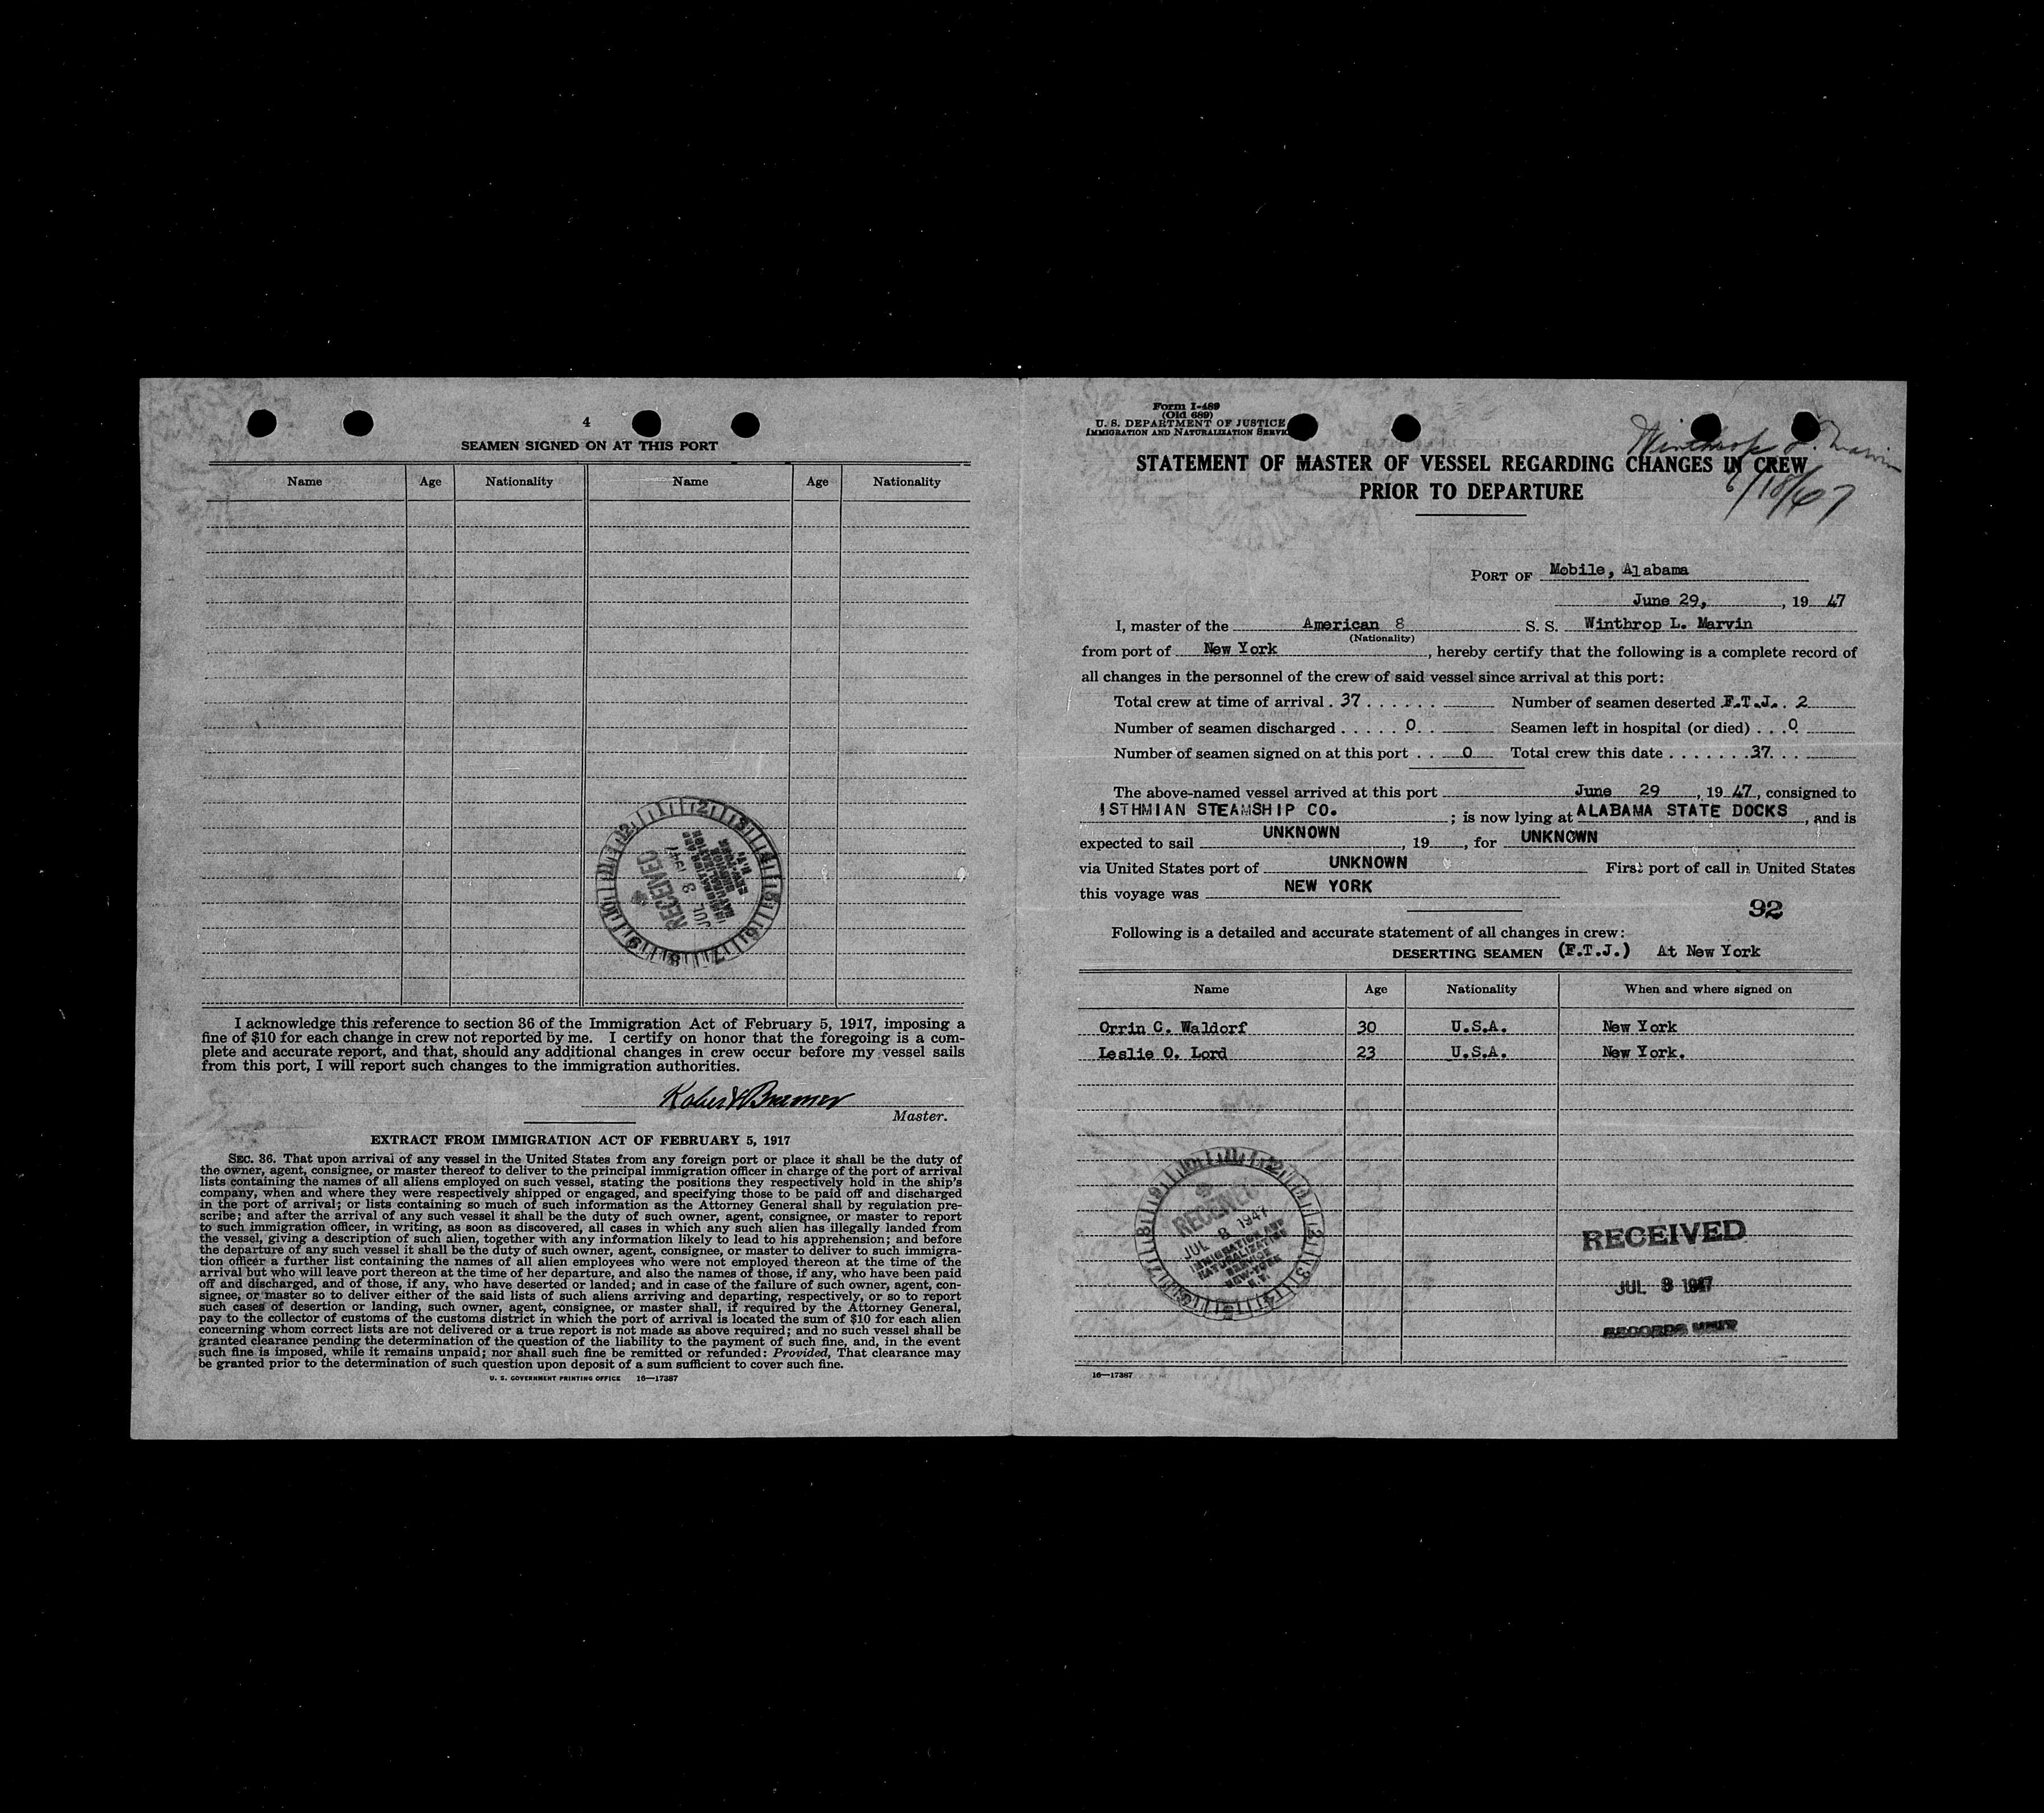 4
SEAMEN SIGNED ON AT THIS PORT
Name Age Nationality Name Age Nationality
RECEIVED
JUL 8 1947
IMMIGRATION AND
NATURALIZATION
SERVICE
NEW-YORK
N.Y.
I acknowledge this reference to section 36 of the Immigration Act of February 5, 1917, imposing a
fine of $10 for each change in crew not reported by me. I certify on honor that the foregoing is a com-
plete and accurate report, and that, should any additional changes in crew occur before my vessel sails
from this port, I will report such changes to the immigration authorities.
Master.
EXTRACT FROM IMMIGRATION ACT OF FEBRUARY 5, 1917
SEC. 36. That upon arrival of any vessel in the United States from any foreign port or place it shall be the duty of
the owner, agent, consignee, or master thereof to deliver to the principal immigration officer in charge of the port of arrival
lists containing the names of all aliens employed on such vessel, stating the positions they respectively hold in the ship's
company, when and where they were respectively shipped or engaged, and specifying those to be paid off and discharged
in the port of arrival; or lists containing so much of such information as the Attorney General shall by regulation pre-
scribe; and after the arrival of any such vessel it shall be the duty of such owner, agent, consignee, or master to report
to such immigration officer, in writing, as soon as discovered, all cases in which any such alien has illegally landed from
the vessel, giving a description of such alien, together with any information likely to lead to his apprehension; and before
the departure of any such vessel it shall be the duty of such owner, agent, consignee, or master to deliver to such immigra-
tion officer a further list containing the names of all alien employees who were not employed thereon at the time of the
arrival but who will leave port thereon at the time of her departure, and also the names of those, if any, who have been paid
off and discharged, and of those, if any, who have deserted or landed; and in case of the failure of such owner, agent, con-
signee, or master so to deliver either of the said lists of such aliens arriving and departing, respectively, or so to report
such cases of desertion or landing, such owner, agent, consignee, or master shall, if required by the Attorney General,
pay to the collector of customs of the customs district in which the port of arrival is located the sum of $10 for each alien
concerning whom correct lists are not delivered or a true report is not made as above required; and no such vessel shall be
granted clearance pending the determination of the question of the liability to the payment of such fine, and, in the event
such fine is imposed, while it remains unpaid; nor shall such fine be remitted or refunded: Provided, That clearance may
be granted prior to the determination of such question upon deposit of a sum sufficient to cover such fine.
U. S. GOVERNMENT PRINTING OFFICE 16—17387
Form I-489
(Old 689)
U. S. DEPARTMENT OF JUSTICE
IMMIGRATION AND NATURALIZATION SERVI
Winthrop L. Marvin
STATEMENT OF MASTER OF VESSEL REGARDING CHANGES IN CREW
PRIOR TO DEPARTURE
PORT OF Mobile, Alabama
June 29, , 19 47
I, master of the American S. S. Winthrop L. Marvin
(Nationality)
from port of New York , hereby certify that the following is a complete record of
all changes in the personnel of the crew of said vessel since arrival at this port:
Total crew at time of arrival . 37 . . . . . . Number of seamen deserted F.T.J. . 2
Number of seamen discharged . . . . . 0 . . Seamen left in hospital (or died) . . . 0
Number of seamen signed on at this port . . 0 Total crew this date . . . . . . . 37 . . .
The above-named vessel arrived at this port June 29 , 19 47 , consigned to
ISTHMIAN STEAMSHIP CO. ; is now lying at ALABAMA STATE DOCKS , and is
expected to sail UNKNOWN , 19 , for UNKNOWN
via United States port of UNKNOWN First port of call in United States
this voyage was NEW YORK
92
Following is a detailed and accurate statement of all changes in crew:
DESERTING SEAMEN (F.T.J.) At New York
Name Age Nationality When and where signed on
Orrin C. Waldorf 30 U.S.A. New York
Leslie O. Lord 23 U.S.A. New York.
RECEIVED
JUL 8 1947
IMMIGRATION AND
NATURALIZATION
SERVICE
NEW-YORK
N.Y.
RECEIVED
JUL 8 1947
RECORDS UNIT
16—17387